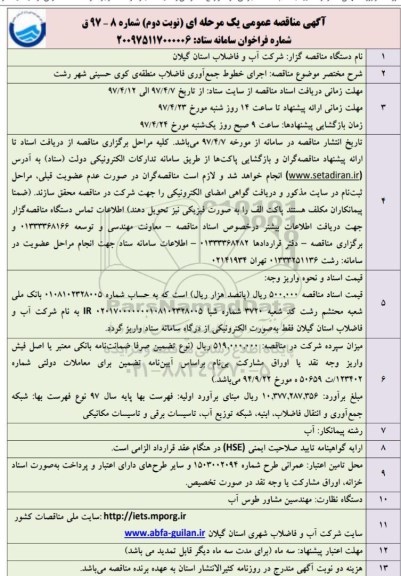 آگهی مناقصه عمومی یک مرحله ای (نوبت دوم) شماره ۸ - ۹۷ ق
شماره فراخوان سامانه ستاد: ۲۰۰۹۷۵۱۱۷۰۰۰۰۰۶
۱ نام دستگاه مناقصه گزار: شرکت آب و فاضلاب استان گیلان
۲ شرح مختصر موضوع مناقصه: اجرای خطوط جمع‌آوری فاضلاب منطقه‌ی کوی حسینی شهر رشت
۳ مهلت زمانی دریافت اسناد مناقصه از سایت ستاد: از تاریخ ۹۷/۴/۷ الی ۹۷/۴/۱۲
مهلت زمانی ارائه پیشنهاد تا ساعت ۱۴ روز شنبه مورخ ۹۷/۴/۲۳
زمان بازگشایی پیشنهادها: ساعت ۹ صبح روز یک‌شنبه مورخ ۹۷/۴/۲۴
۴ تاریخ انتشار مناقصه در سامانه از مورخه ۹۷/۴/۷ می‌باشد. کلیه مراحل برگزاری مناقصه از دریافت اسناد تا
ارائه پیشنهاد مناقصه‌گران و بازگشایی پاکت‌ها از طریق سامانه تدارکات الکترونیکی دولت (ستاد) به آدرس
(www.setadiran.ir) انجام خواهد شد و لازم است مناقصه‌گران در صورت عدم عضویت قبلی، مراحل
ثبت‌نام در سایت مذکور و دریافت گواهی امضای الکترونیکی را جهت شرکت در مناقصه محقق سازند. (ضمنا
پیمانکاران مکلف هستند پاکت الف را به صورت فیزیکی نیز تحویل دهند) اطلاعات تماس دستگاه مناقصه‌گزار
جهت دریافت اطلاعات بیشتر درخصوص اسناد مناقصه - معاونت مهندسی و توسعه ۰۱۳۳۳۳۶۸۱۶۶ و
برگزاری مناقصه - دفتر قراردادها ۰۱۳۳۳۳۶۸۲۸۲ - اطلاعات سامانه ستاد جهت انجام مراحل عضویت در
سامانه: رشت ۰۱۳۳۳۲۵۱۱۳۶ تهران ۰۲۱۴۱۹۳۴
۵ قیمت اسناد و نحوه واریز وجه:
قیمت اسناد مناقصه ۵۰۰,۰۰۰ ریال (پانصد هزار ریال) است که به حساب شماره ۰۱۰۸۱۰۲۳۲۸۰۰۵ بانک ملی
شعبه محتشم رشت کد شعبه ۳۷۲۰ شماره شبا IR به نام شرکت آب و
فاضلاب استان گیلان فقط به‌صورت الکترونیکی از درگاه سامانه ستاد واریز گردد.
۶ میزان سپرده شرکت در مناقصه: ۵۱۹,۰۰۰,۰۰۰ ریال (نوع تضمین صرفا ضمانت‌نامه بانکی معتبر یا اصل فیش
واریز وجه نقد یا اوراق مشارکت بی‌نام براساس آیین‌نامه تضمین برای معاملات دولتی شماره
۱۲۳۴۰۲/ت ۵۰۶۵۹ ه مورخ ۹۴/۹/۲۲ می‌باشد.)
مبلغ برآورد: ۱۰,۳۷۷,۲۸۷,۳۵۶ ریال مبنای برآورد اولیه: فهرست بها پایه سال ۹۷ نوع فهرست بها: شبکه
جمع‌آوری و انتقال فاضلاب، ابنیه، شبکه توزیع آب، تاسیسات برقی و تاسیسات مکانیکی
۷ رشته پیمانکار: آب
۸ ارایه گواهینامه تایید صلاحیت ایمنی (HSE) در هنگام عقد قرارداد الزامی است.
۹ محل تامین اعتبار: عمرانی طرح شماره ۱۵۰۳۰۰۲۰۹۴ و سایر طرح‌های دارای اعتبار و پرداخت به‌صورت اسناد
خزانه، اوراق مشارکت یا وجه نقد در صورت تخصیص.
۱۰ دستگاه نظارت: مهندسین مشاور طوس آب
۱۱ http://iets.mporg.ir :سایت ملی مناقصات کشور
سایت شرکت آب و فاضلاب شهری استان گیلان www.abfa-guilan.ir
۱۲ مهلت اعتبار پیشنهاد: سه ماه (برای مدت سه ماه دیگر قابل تمدید می باشد)
۱۳ هزینه دو نوبت آگهی مندرج در روزنامه کثیرالانتشار استان به عهده برنده مناقصه می‌باشد.